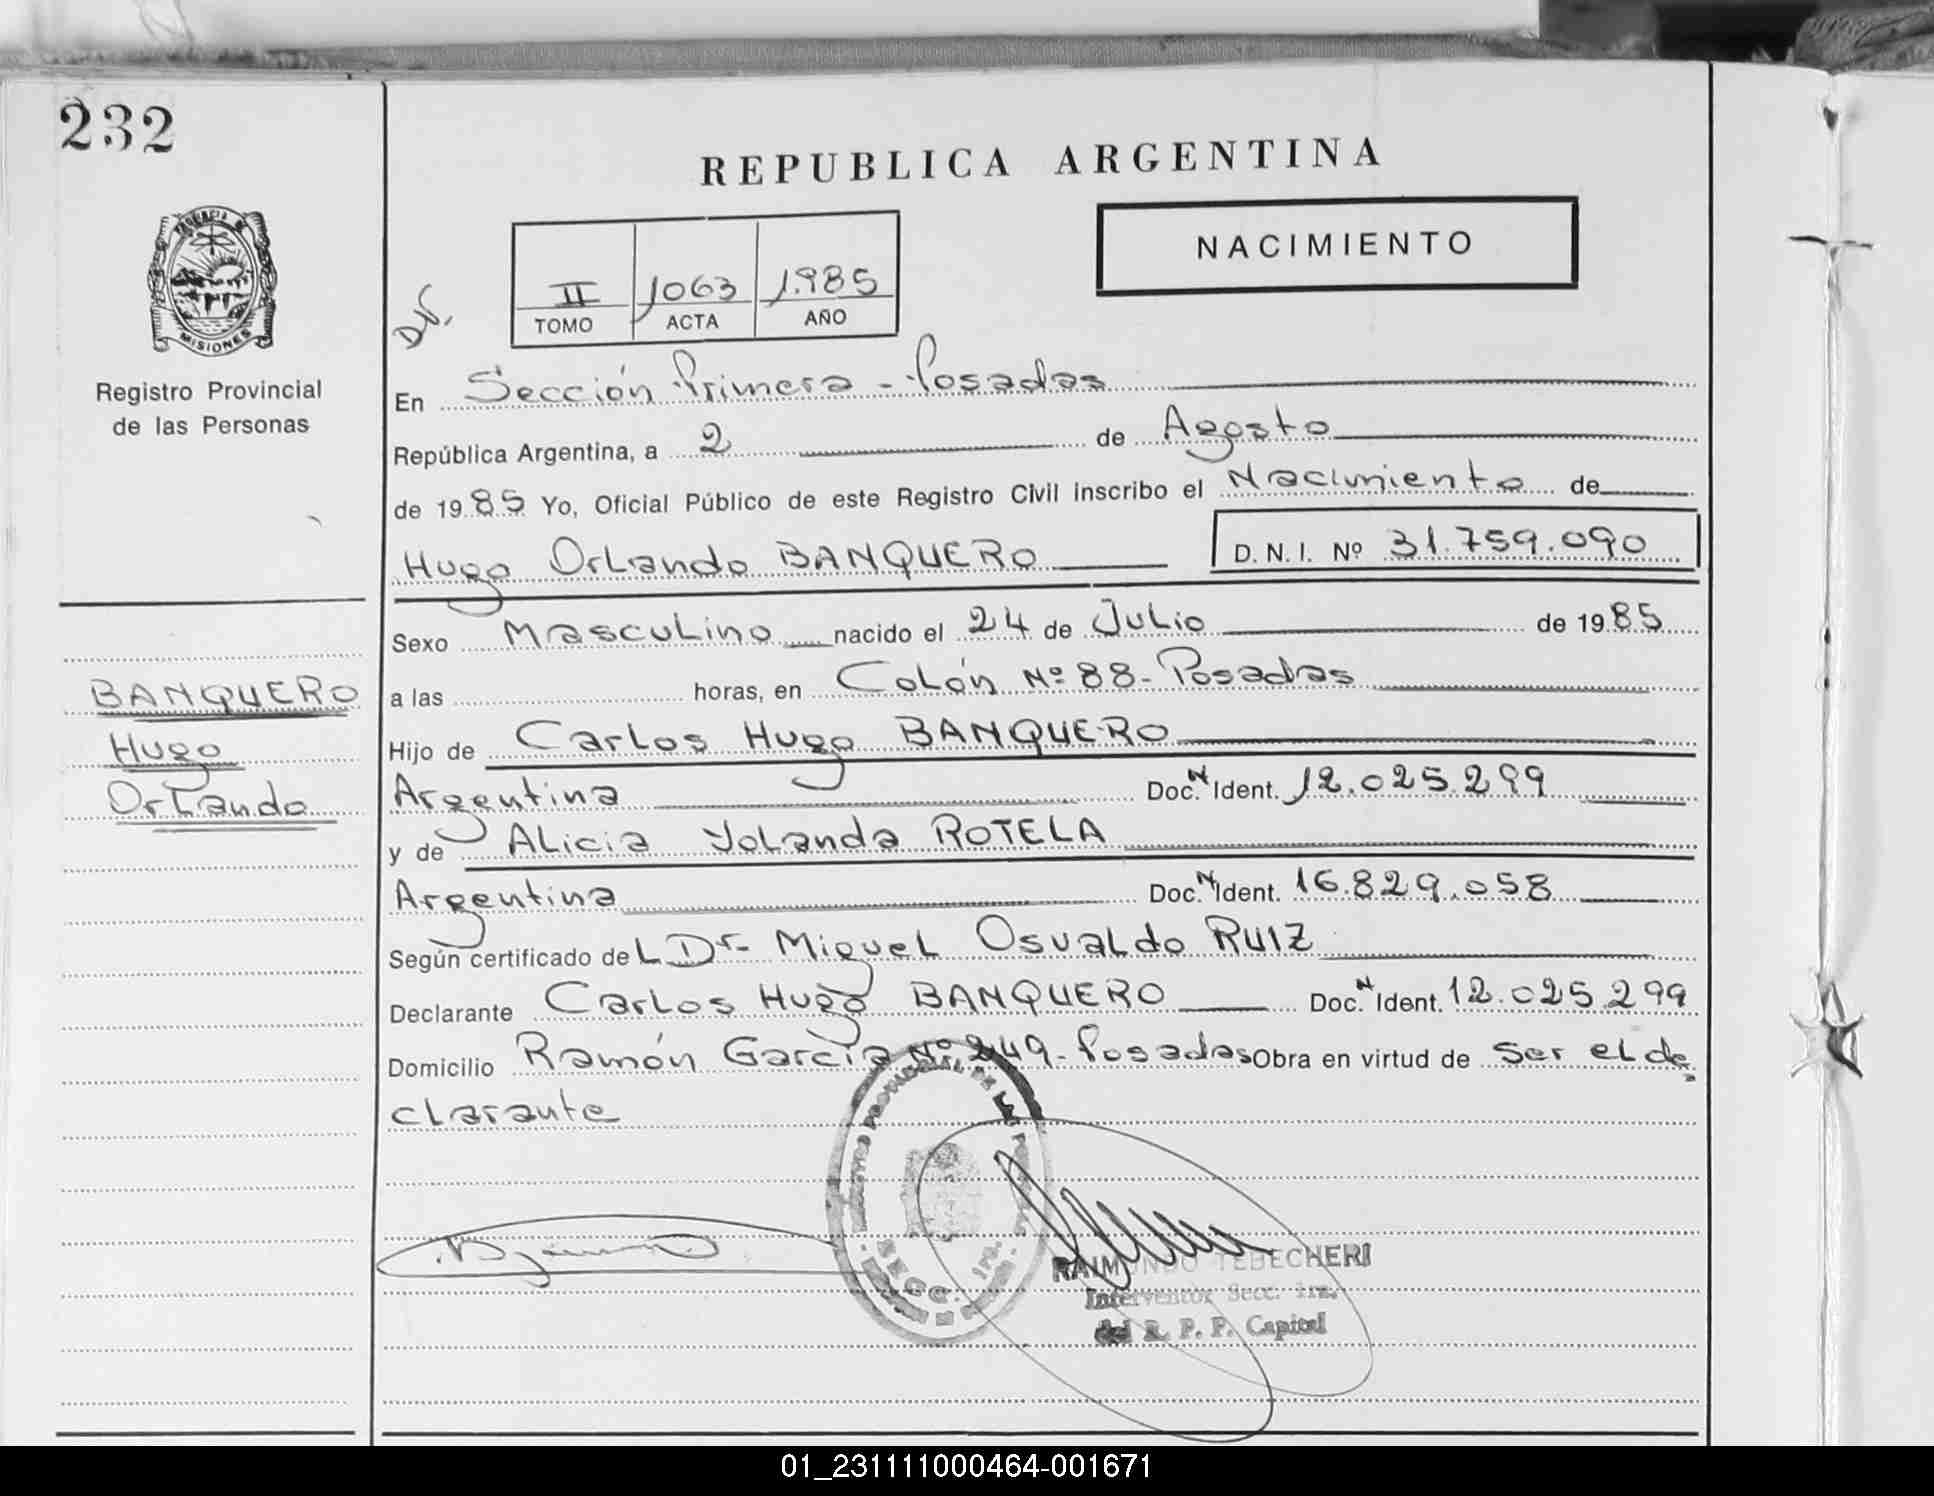 232
REPUBLICA ARGENTINA
NACIMIENTO
II 1063 1.985
TOMO ACTA AÑO
PROVINCIA DE
MISIONES
Registro Provincial
de las Personas
En Sección Primera - Posadas
República Argentina, a 2 de Agosto
de 19 85 Yo, Oficial Público de este Registro Civil inscribo el Nacimiento de
Hugo Orlando BANQUERO D.N.I. Nº 31.759.090
Sexo Masculino nacido el 24 de Julio de 19 85
a las horas, en Colón Nº 88 - Posadas
Hijo de Carlos Hugo BANQUERO
Argentina Doc. N Ident. 12.025.299
y de Alicia Yolanda ROTELA
Argentina Doc. N Ident. 16.829.058
Según certificado de L Dr. Miguel Osvaldo RUIZ
Declarante Carlos Hugo BANQUERO Doc. N Ident. 12.025.299
Domicilio Ramón García Nº 249 - Posadas Obra en virtud de ser el de
clarante
BANQUERO
Hugo
Orlando
SECC. 1ra.
RAIMUNDO TEBECHERI
Interventor Secc. 1ra.
del R. P. P. Capital
01_231111000464-001671